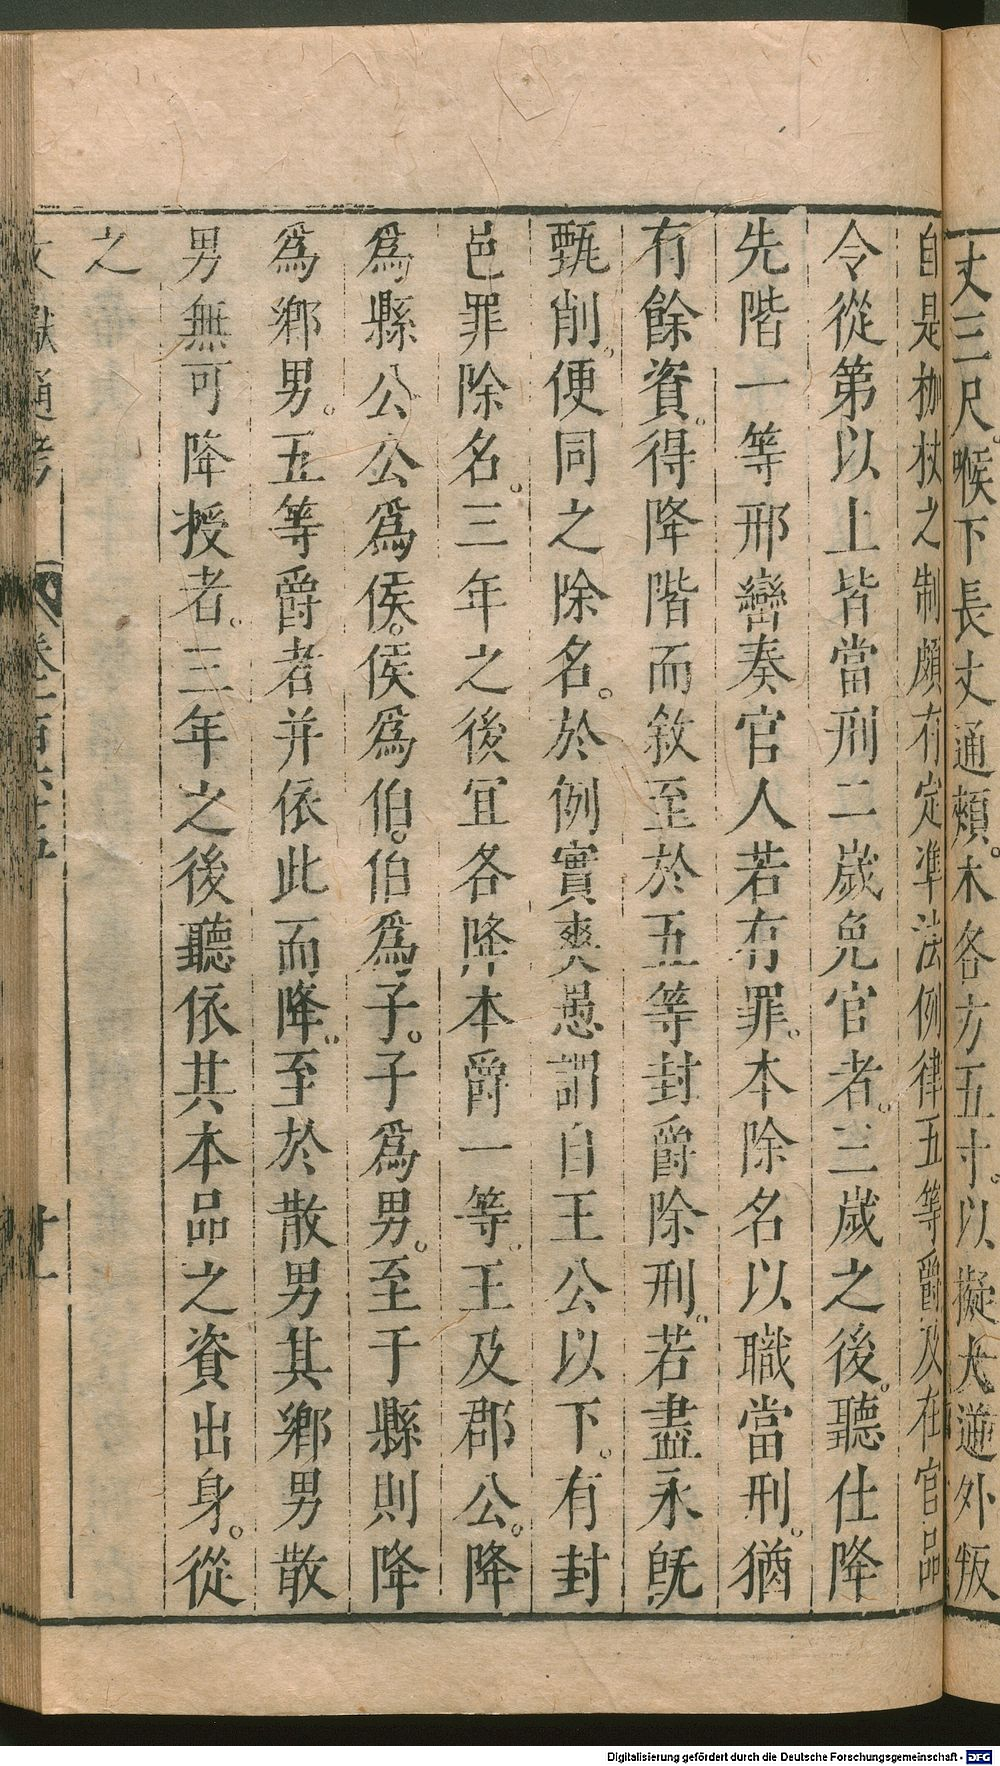 丈三尺。喉下長丈。通頰。木各方五寸。以擬大逆外叛
自是枷杖之制頗有定準法例律五等爵及在官品
令從第以上皆當刑二歲免官者。三歲之後。聽仕降
先階一等邢巒奏官人若有罪。本除名以職當刑。猶
有餘資。得降階而敘至於五等封爵除刑。若盡永旣
甄削。便同之除名。於例實爽愚謂自王公以下。有封
邑罪除名。三年之後宜各降本爵一等。王及郡公。降
爲縣公公爲侯。侯爲伯。伯爲子。子爲男。至于縣則降
爲鄉男。五等爵者并依此而降。至於散男其鄉男散
男無可降授者。三年之後聽依其本品之資出身。從
之
文獻通考 卷一百六十五 廿一
Digitalisierung gefördert durch die Deutsche Forschungsgemeinschaft - DFG